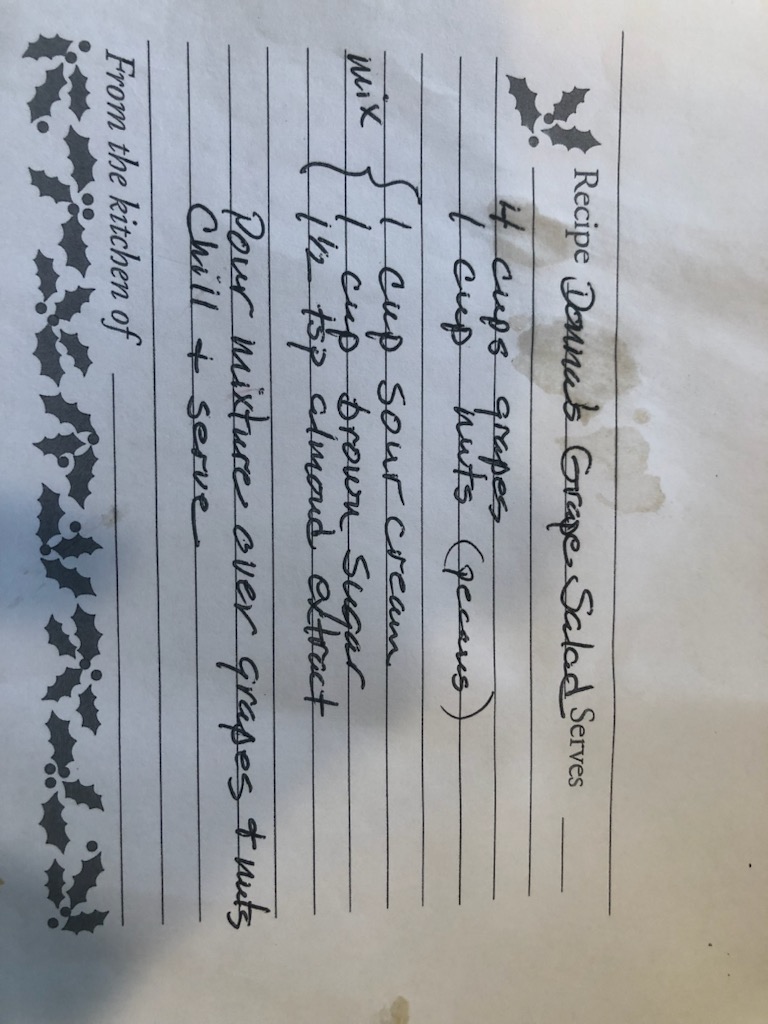 Recipe Donna's Grape Salad Serves
4 cups grapes
1 cup nuts (pecans)
mix { 1 cup sour cream
1 cup brown sugar
1½ tsp almond extract
Pour mixture over grapes + nuts
Chill + serve
From the kitchen of